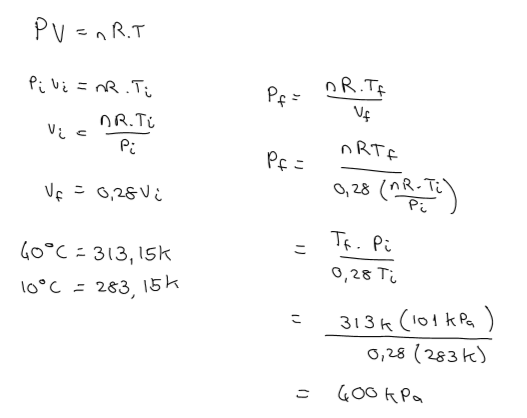 PV = nR.T
Pi Vi = nR.Ti
Vi = nR.Ti / Pi
Vf = 0,28Vi
40°C = 313,15K
10°C = 283,15K
Pf = nR.Tf / Vf
Pf = nRTf / 0,28 (nR.Ti / Pi)
= Tf. Pi / 0,28 Ti
= 313K (101 kPa) / 0,28 (283K)
= 400 kPa